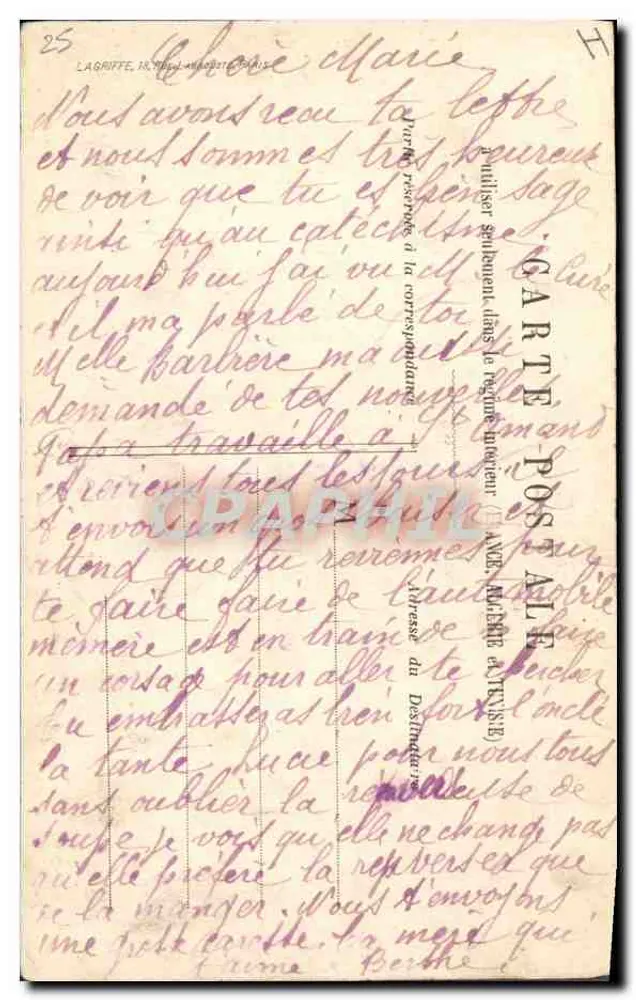 25
H
LAGRIFFE, 18, Rue PARIS
Chère Marie
Nous avons recu ta lettre
et nous sommes très heureux
de voir que tu es bien sage
qu'au catéchisme.
aujourd'hui j'ai vu M. le Curé
il ma parlé de toi
Melle Barbière ma aussi
demandé de tes nouvelles
Papa travaille à
et reviens tous les jours, il
t'envois un et
attend que tu reviennes pour
te faire faire de l'automobile
mémère est en train de faire
un corsage pour aller te chercher
tu embrasseras bien fort l'oncle
la tante Lucie pour nous tous
sans oublier la de
soupe, je vois qu'elle ne change pas
qu'elle préfère la renversée que
de la manger. Nous t'envoyons
une caresse. ta mère qui
t'aime Berthe.
CARTE POSTALE
à utiliser seulement dans le régime intérieur (FRANCE, ALGÉRIE et TUNISIE)
Partie réservée à la correspondance
Adresse du Destinataire
M
CPAPHIL